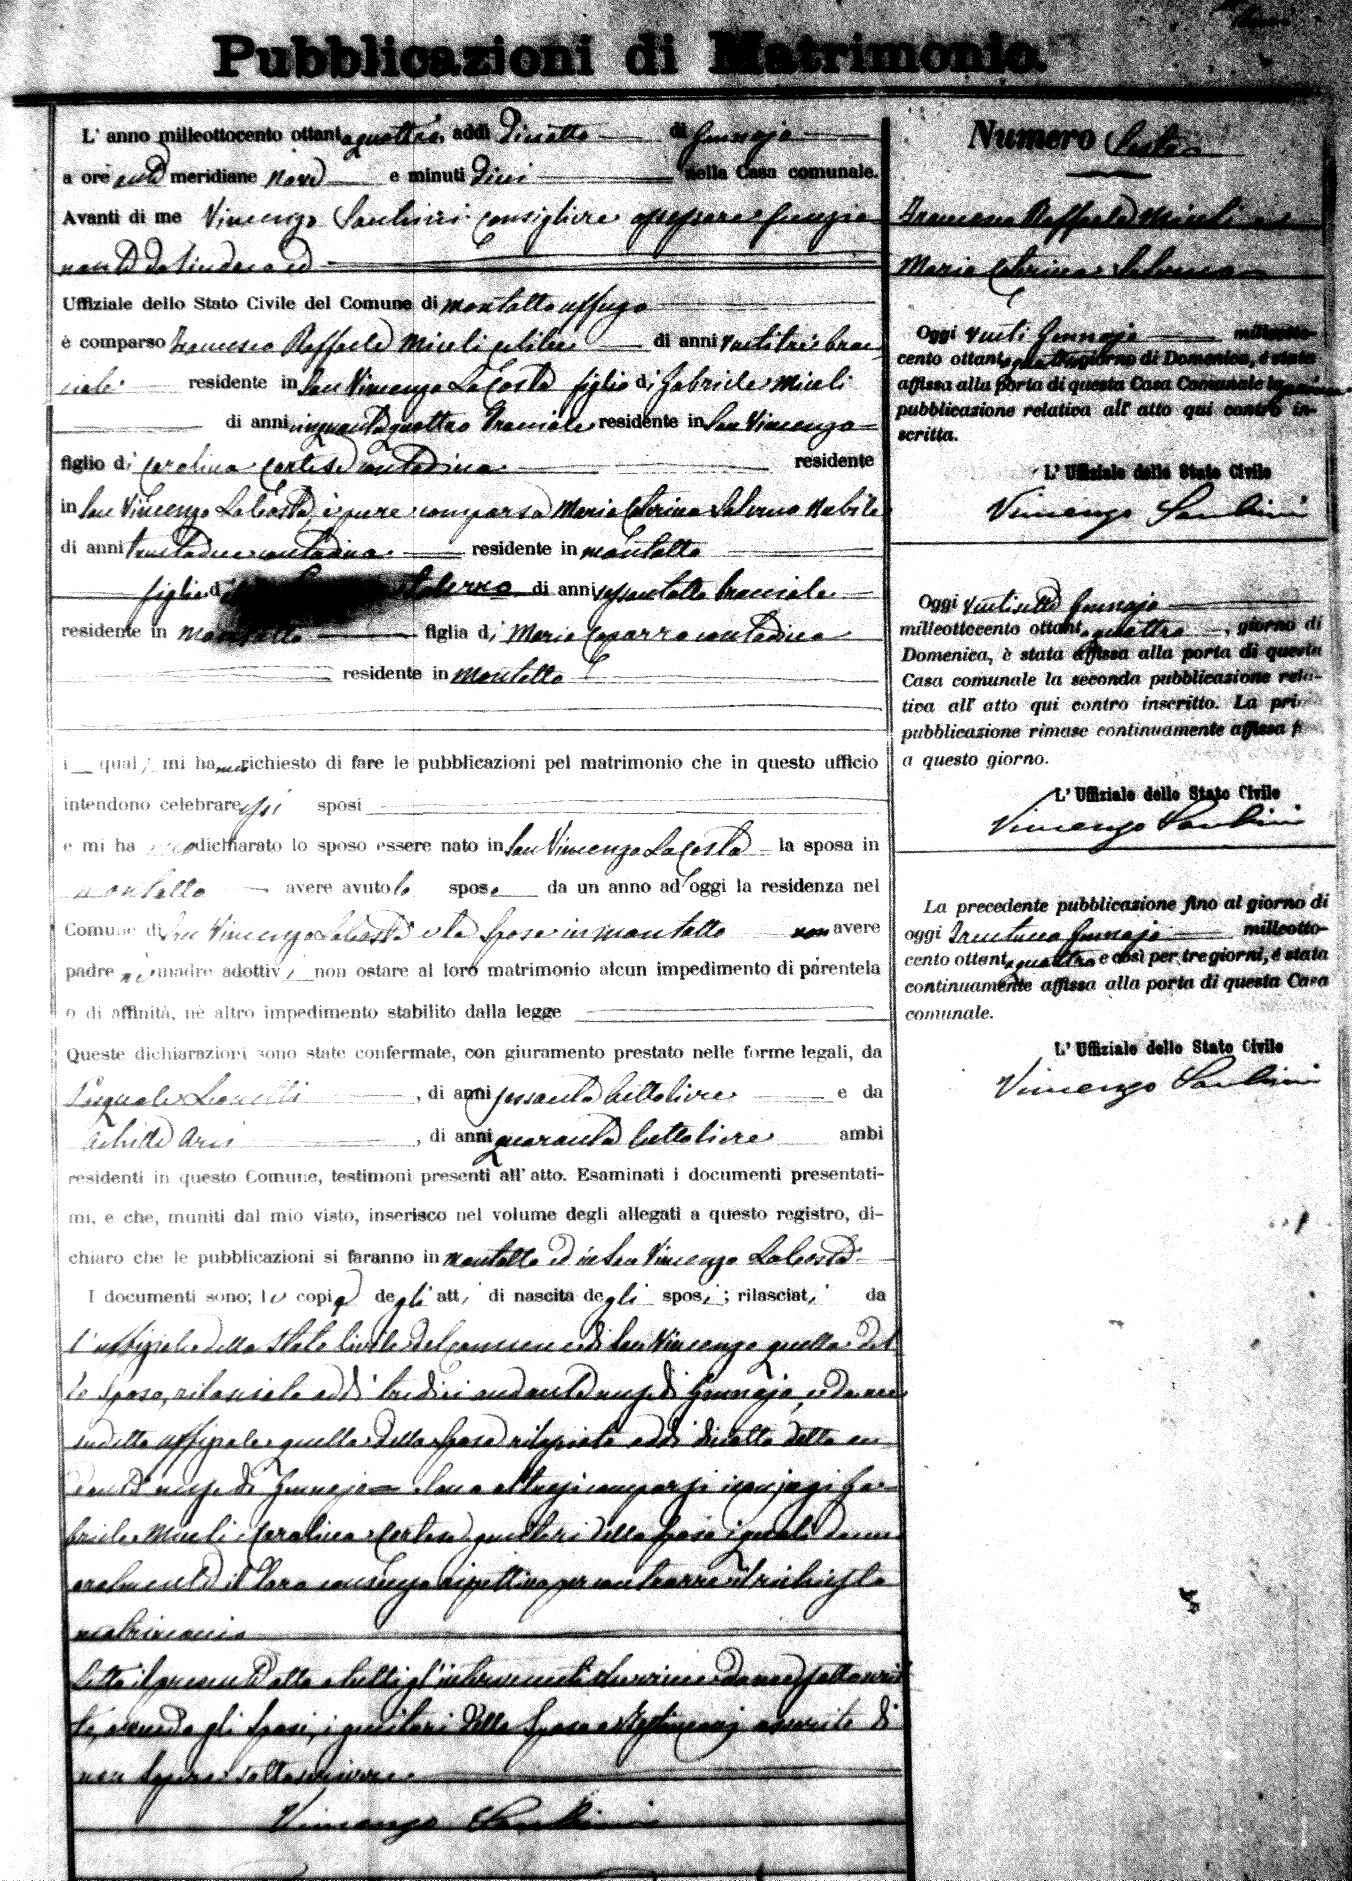 Pubblicazioni di Matrimonio.
L' anno milleottocento ottantaquattro, addi dieciotto di Gennajo
a ore anti meridiane nove e minuti dieci nella Casa comunale.
Avanti di me Vincenzo Santini Consigliere assessore funzio
nante da Sindaco ed
Uffiziale dello Stato Civile del Comune di Montalto Uffugo
è comparso Francesco Raffaele Miceli celibe di anni ventitrè brac
ciale residente in San Vincenzo La Costa figlio di Gabriele Miceli
di anni cinquantaquattro bracciale residente in San Vincenzo
figlio di Carolina Cortese contadina residente
in San Vincenzo La Costa, è pure comparsa Maria Caterina Salerno Nubile
di anni trentadue contadina residente in Montalto
figlia di Salerno di anni sessantotto bracciale
residente in Montalto figlia di Maria Caparra contadina
residente in Montalto
i quali mi hanno richiesto di fare le pubblicazioni pel matrimonio che in questo ufficio
intendono celebrare essi sposi
e mi hanno dichiarato lo sposo essere nato in San Vincenzo La Costa la sposa in
Montalto avere avuto lo sposo da un anno ad oggi la residenza nel
Comune di San Vincenzo La Costa e la Sposa in Montalto non avere
padre nè madre adottivi, non ostare al loro matrimonio alcun impedimento di parentela
o di affinità, nè altro impedimento stabilito dalla legge
Queste dichiarazioni sono state confermate, con giuramento prestato nelle forme legali, da
Pasquale, di anni sessanta bettoliere e da
Achille, di anni quaranta bettoliere ambi
residenti in questo Comune, testimoni presenti all' atto. Esaminati i documenti presentati-
mi, e che, muniti dal mio visto, inserisco nel volume degli allegati a questo registro, di-
chiaro che le pubblicazioni si faranno in Montalto ed in San Vincenzo La Costa
I documenti sono; le copie degli atti di nascita degli sposi; rilasciati da
l'uffiziale dello Stato Civile del Comune di San Vincenzo quella del
lo Sposo, rilasciata addi tredici andante mese di Gennajo, e da me
sudetto uffiziale quella della Sposa rilasciata addi dieciotto detto an
dante mese di Gennajo Sono altresì comparsi i conjugi Ga
briele Miceli e Carolina Cortese genitori dello Sposo i quali danno
oralmente il loro consenso rispettivo per contrarre il richiesto
matrimonio
Letto il presente atto a tutti gl'intervenuti da me sottoscrit
to, avendo gli Sposi, i genitori dello Sposo e testimonj asserito di
non sapere sottoscrivere
Vincenzo Santini
Numero Sesto
Francesco Raffaele Miceli e
Maria Caterina Salerno
Oggi venti Gennajo milleotto-
cento ottantaquattro giorno di Domenica, è stata
affissa alla porta di questa Casa Comunale la prima
pubblicazione relativa all' atto qui contro in-
scritta.
L' Uffiziale dello Stato Civile
Vincenzo Santini
Oggi ventisette Gennajo
milleottocento ottantaquattro, giorno di
Domenica, è stata affissa alla porta di questa
Casa comunale la seconda pubblicazione rela-
tiva all' atto qui contro inscritto. La prima
pubblicazione rimase continuamente affissa fino
a questo giorno.
L' Uffiziale dello Stato Civile
Vincenzo Santini
La precedente pubblicazione fino al giorno di
oggi Trentuno Gennajo milleotto-
cento ottantaquattro e così per tre giorni, è stata
continuamente affissa alla porta di questa Casa
comunale.
L' Uffiziale dello Stato Civile
Vincenzo Santini